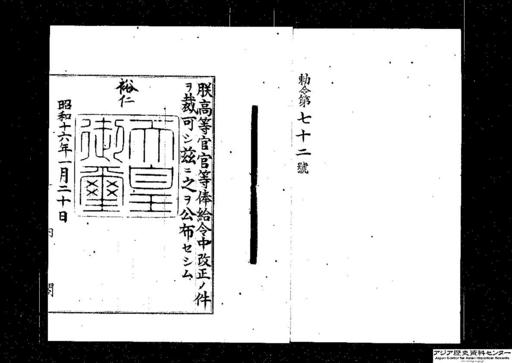 勅令第七十二號
朕高等官官等俸給令中改正ノ件
ヲ裁可シ茲ニ之ヲ公布セシム
裕仁
天皇御璽
昭和十六年一月二十日
内閣
アジア歴史資料センター
Japan Center for Asian Historical Records